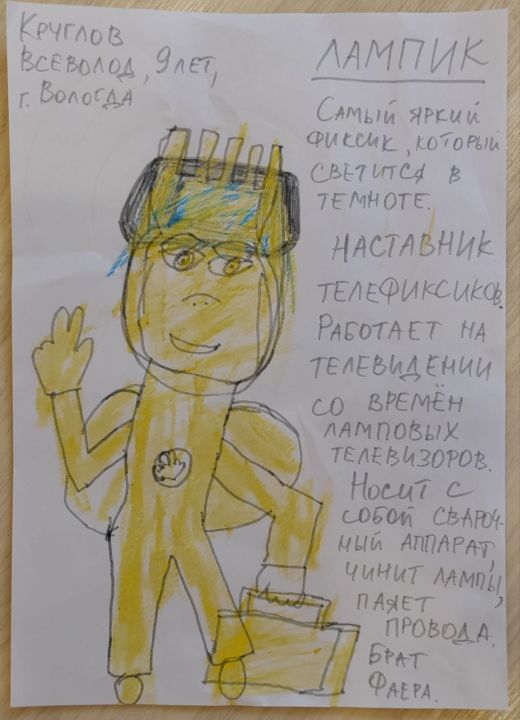 Круглов
Всеволод, 9 лет,
г. Вологда
ЛАМПИК
Самый яркий
фиксик, который
светится в
темноте.
Наставник
телефиксиков.
Работает на
телевидении
со времён
ламповых
телевизоров.
Носит с
собой свароч-
ный аппарат,
чинит лампы,
паяет
провода.
Брат
Фаера.